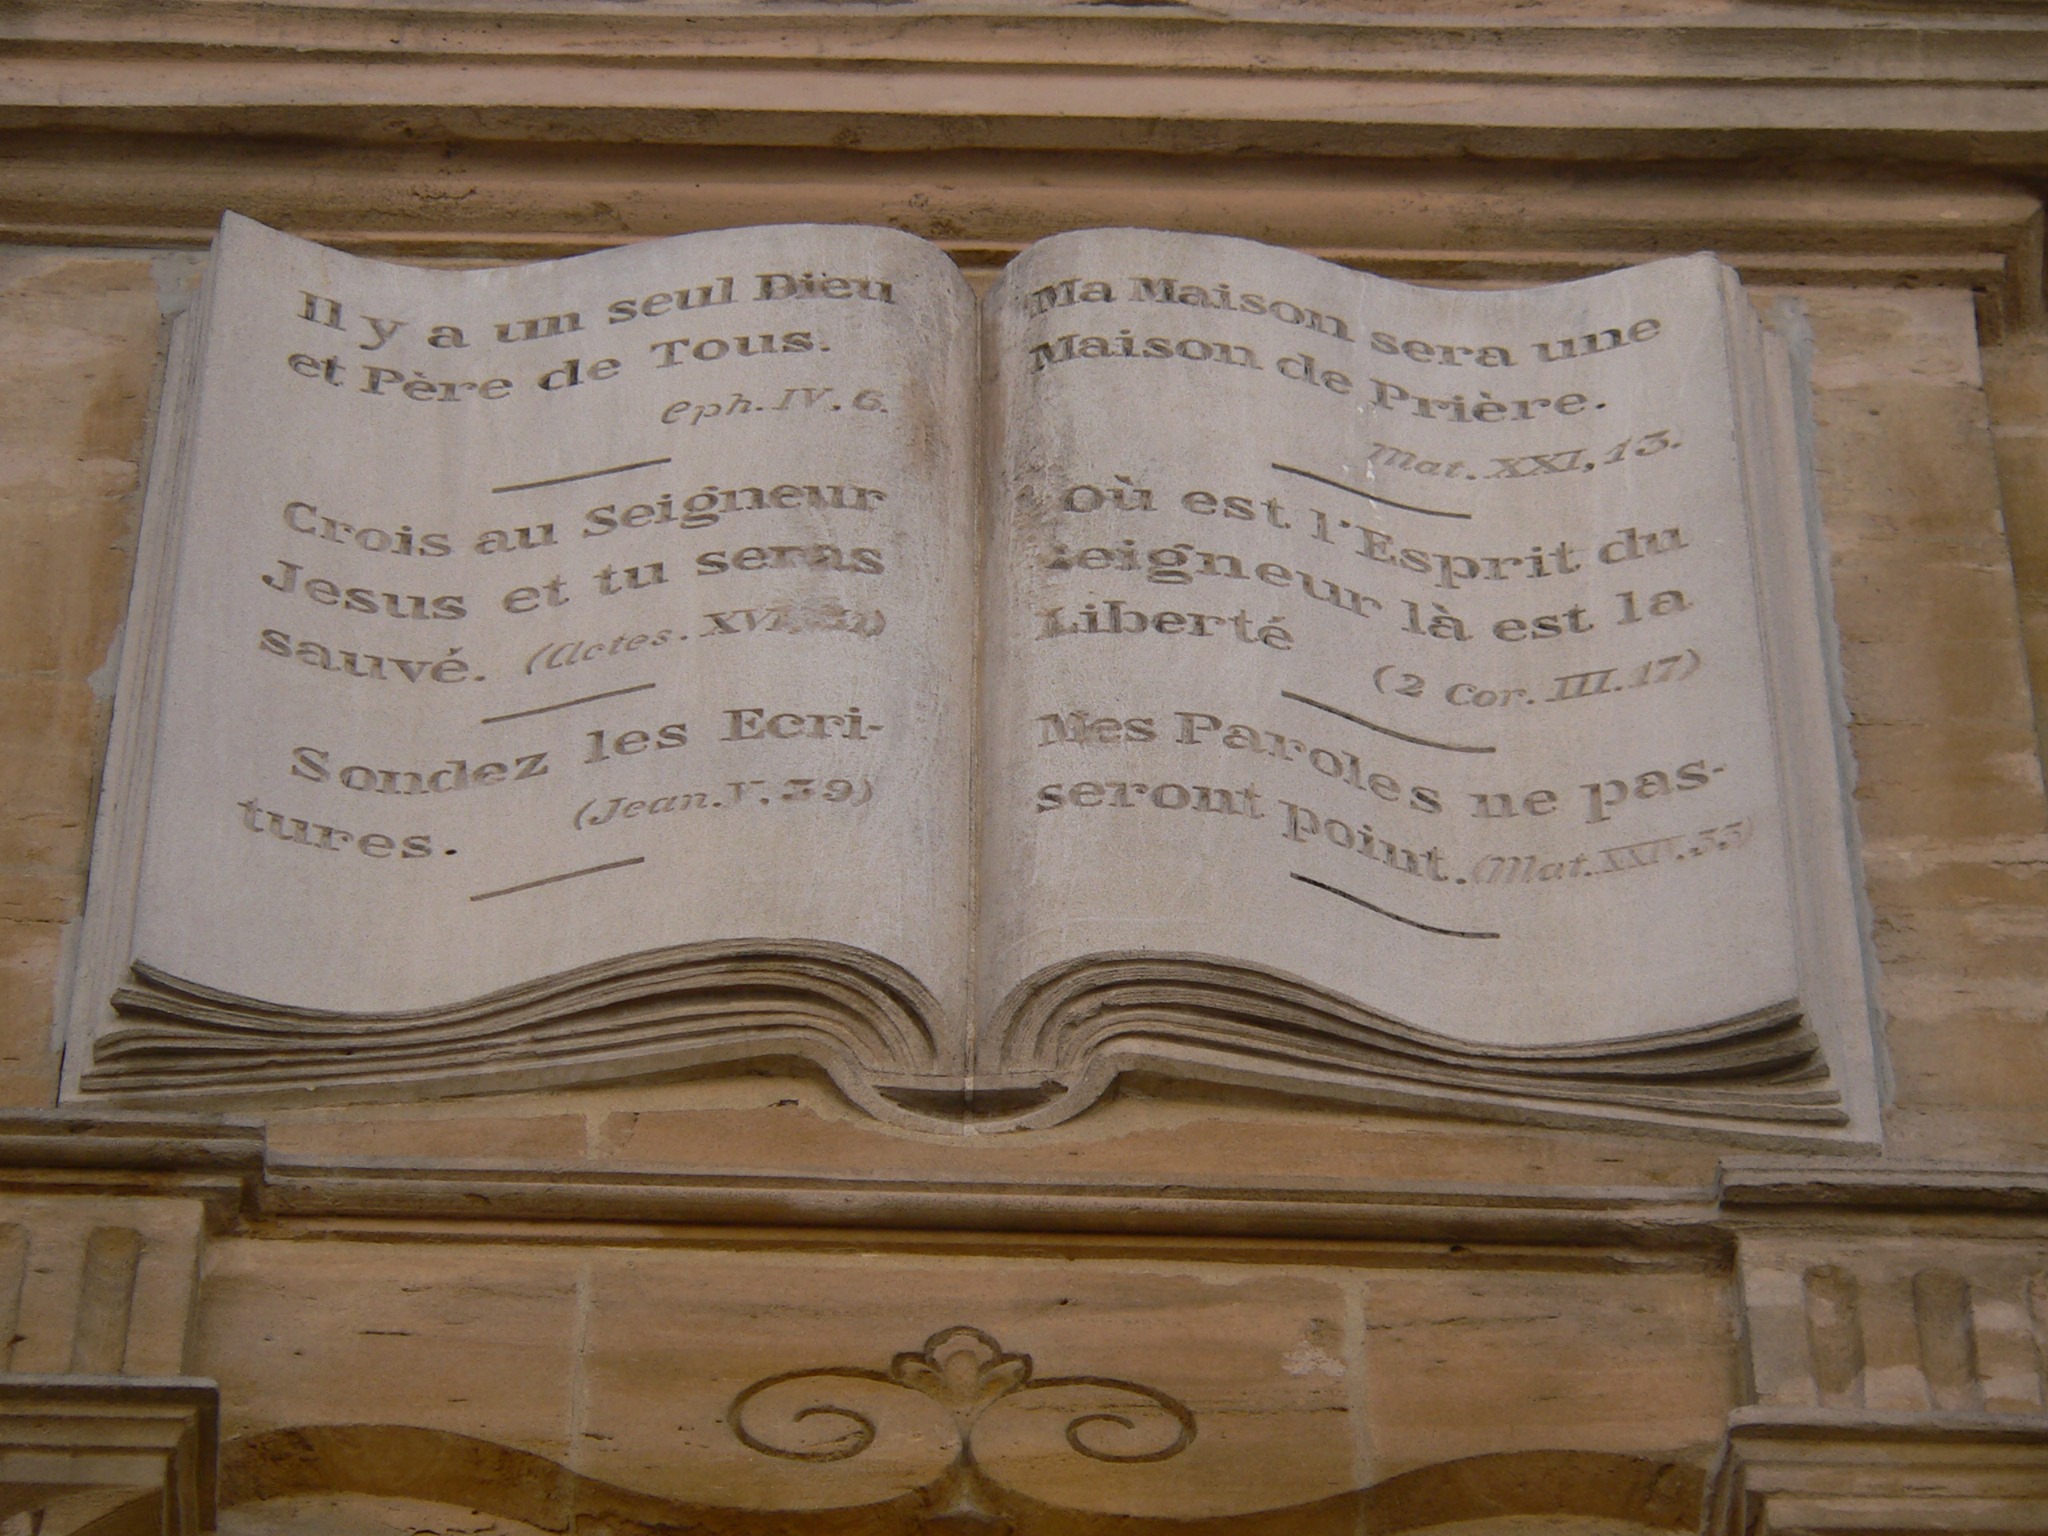 Il y a un seul Dieu
et Père de Tous.
Eph. IV. 6.
Crois au Seigneur
Jesus et tu seras
sauvé. (Actes. XVI,
Sondez les Ecri-
tures. (Jean. V. 39)
Ma Maison sera une
Maison de Prière.
Mat. XXI, 13.
Où est l'Esprit du
Seigneur là est la
Liberté
(2 Cor. III. 17)
Mes Paroles ne pas-
seront point. (Mat. XXIV. 33)